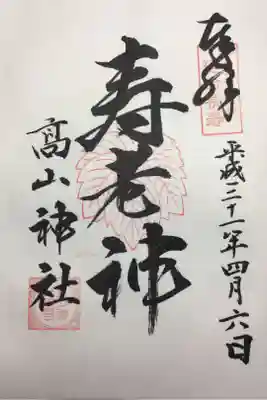 奉拝
平成三十一年四月六日
寿老神
高山神社